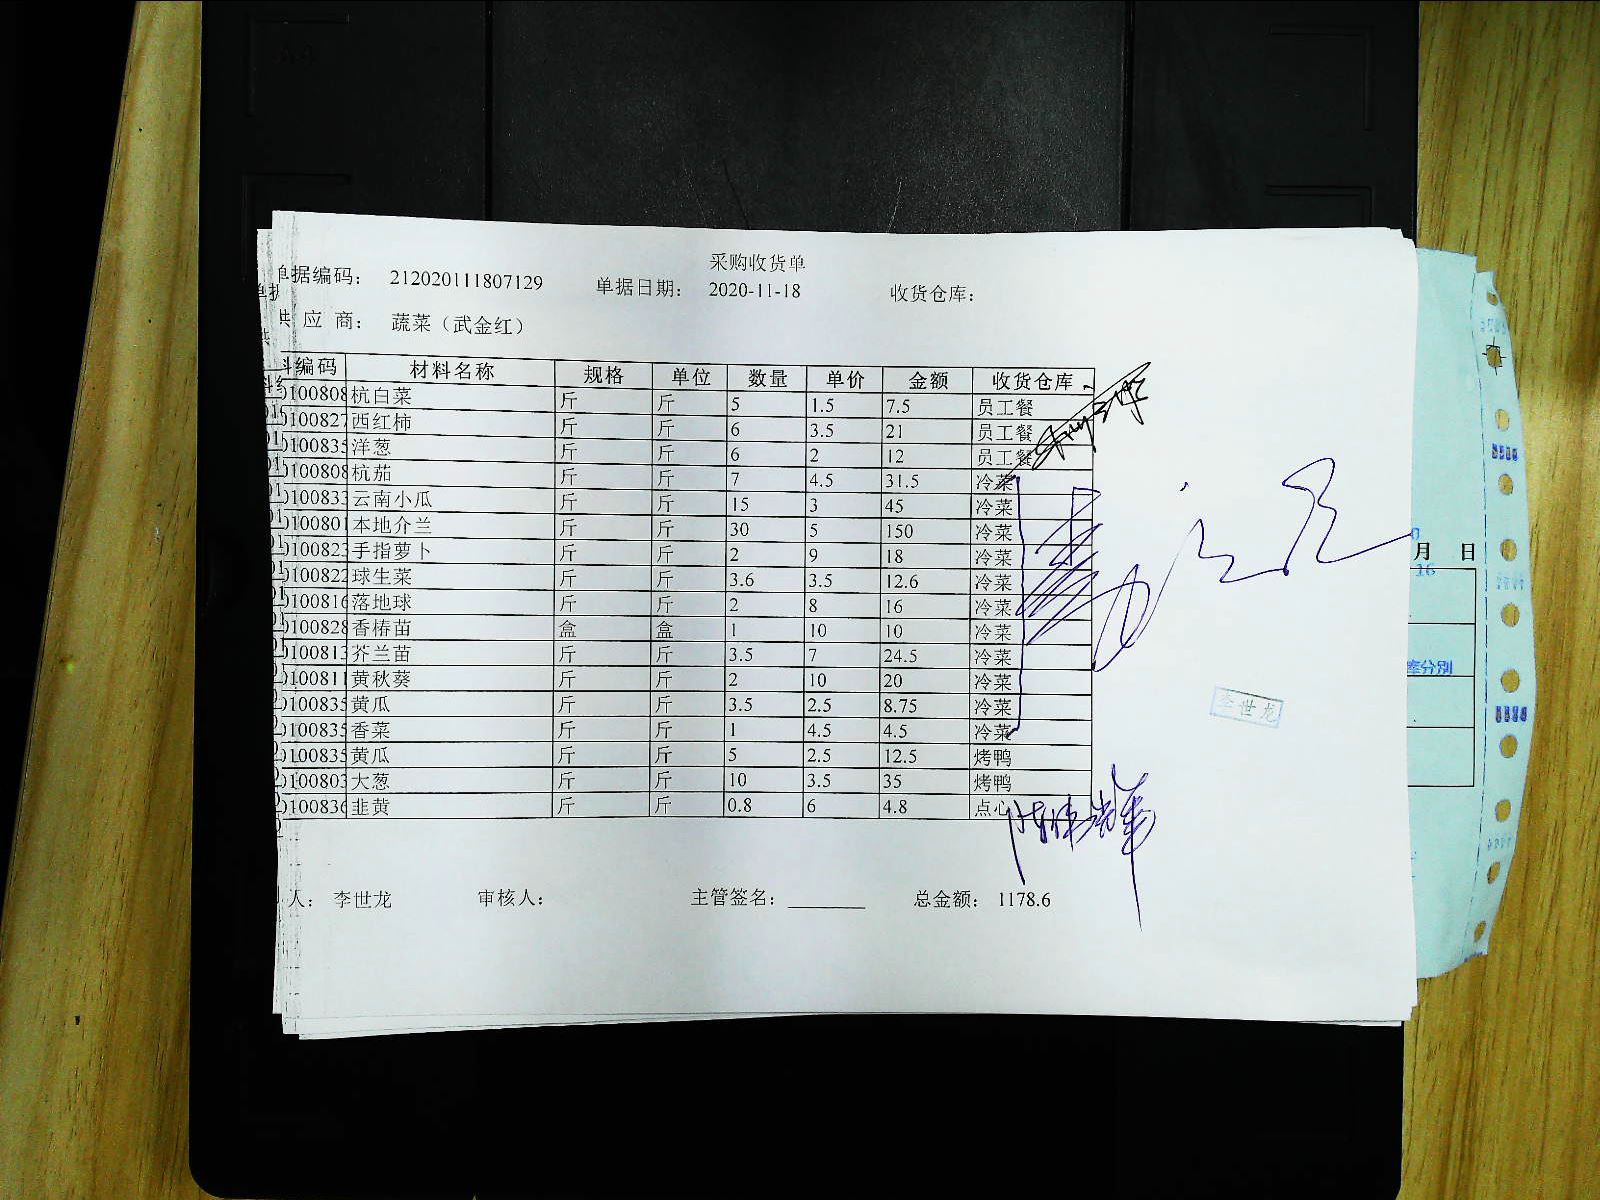 采购收货单
单据编码： 212020111807129 单据日期： 2020-11-18 收货仓库：
供 应 商： 蔬菜（武金红）
料编码 材料名称 规格 单位 数量 单价 金额 收货仓库
0100808 杭白菜 斤 斤 5 1.5 7.5 员工餐
0100827 西红柿 斤 斤 6 3.5 21 员工餐
0100835 洋葱 斤 斤 6 2 12 员工餐
0100808 杭茄 斤 斤 7 4.5 31.5 冷菜
0100833 云南小瓜 斤 斤 15 3 45 冷菜
0100801 本地介兰 斤 斤 30 5 150 冷菜
0100823 手指萝卜 斤 斤 2 9 18 冷菜
0100822 球生菜 斤 斤 3.6 3.5 12.6 冷菜
0100816 落地球 斤 斤 2 8 16 冷菜
0100828 香椿苗 盒 盒 1 10 10 冷菜
0100813 芥兰苗 斤 斤 3.5 7 24.5 冷菜
0100811 黄秋葵 斤 斤 2 10 20 冷菜
0100835 黄瓜 斤 斤 3.5 2.5 8.75 冷菜
0100835 香菜 斤 斤 1 4.5 4.5 冷菜
0100835 黄瓜 斤 斤 5 2.5 12.5 烤鸭
0100803 大葱 斤 斤 10 3.5 35 烤鸭
0100836 韭黄 斤 斤 0.8 6 4.8 点心
人： 李世龙 审核人： 主管签名： 总金额： 1178.6
李世龙
月 日
16